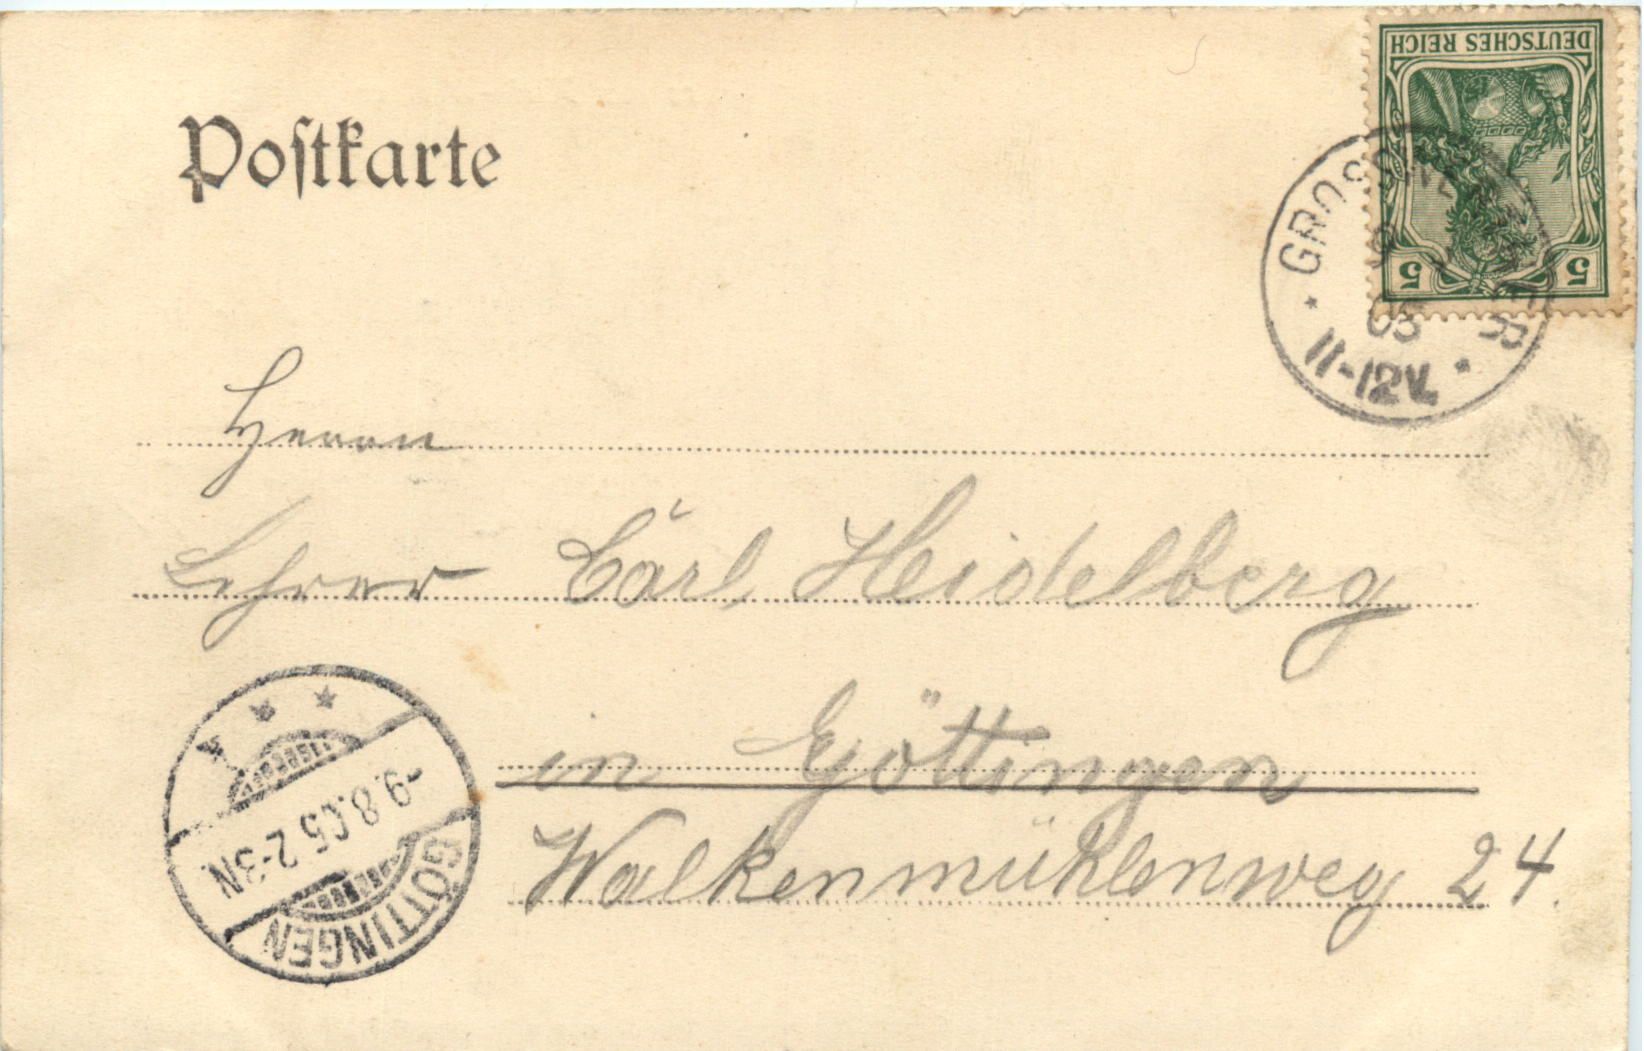 DEUTSCHES REICH
5 5
Postkarte
05
11-12V.
Herrn
Lehrer Carl Heidelberg
in Göttingen
Walkenmühlenweg 24.
GÖTTINGEN
-9.8.05.2-3N.